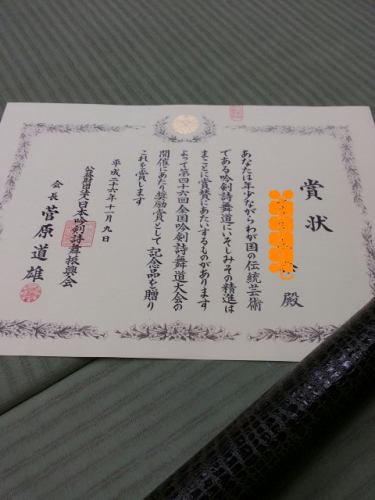 賞状
殿
あなたは年少ながらわが国の伝統芸術
である吟剣詩舞道にいそしみその精進は
まことに賞賛にあたいするものがあります
よって第四十六回全国吟剣詩舞道大会の
開催にあたり奨励賞として記念品を贈り
これを賞します
平成二十六年十一月九日
公益財団法人日本吟剣詩舞振興会
会長 菅原道雄